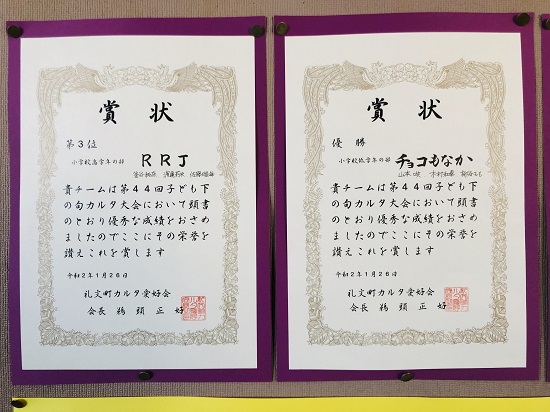 賞状
第3位
小学校高学年の部 RRJ
貴チームは第44回子ども下
の句カルタ大会において頭書
のとおり優秀な成績をおさめ
ましたのでここにその栄誉を
讃えこれを賞します
令和2年1月26日
礼文町カルタ愛好会
会長 鵜頭正好
賞状
優勝
小学校低学年の部 チョコもなか
貴チームは第44回子ども下
の句カルタ大会において頭書
のとおり優秀な成績をおさめ
ましたのでここにその栄誉を
讃えこれを賞します
令和2年1月26日
礼文町カルタ愛好会
会長 鵜頭正好